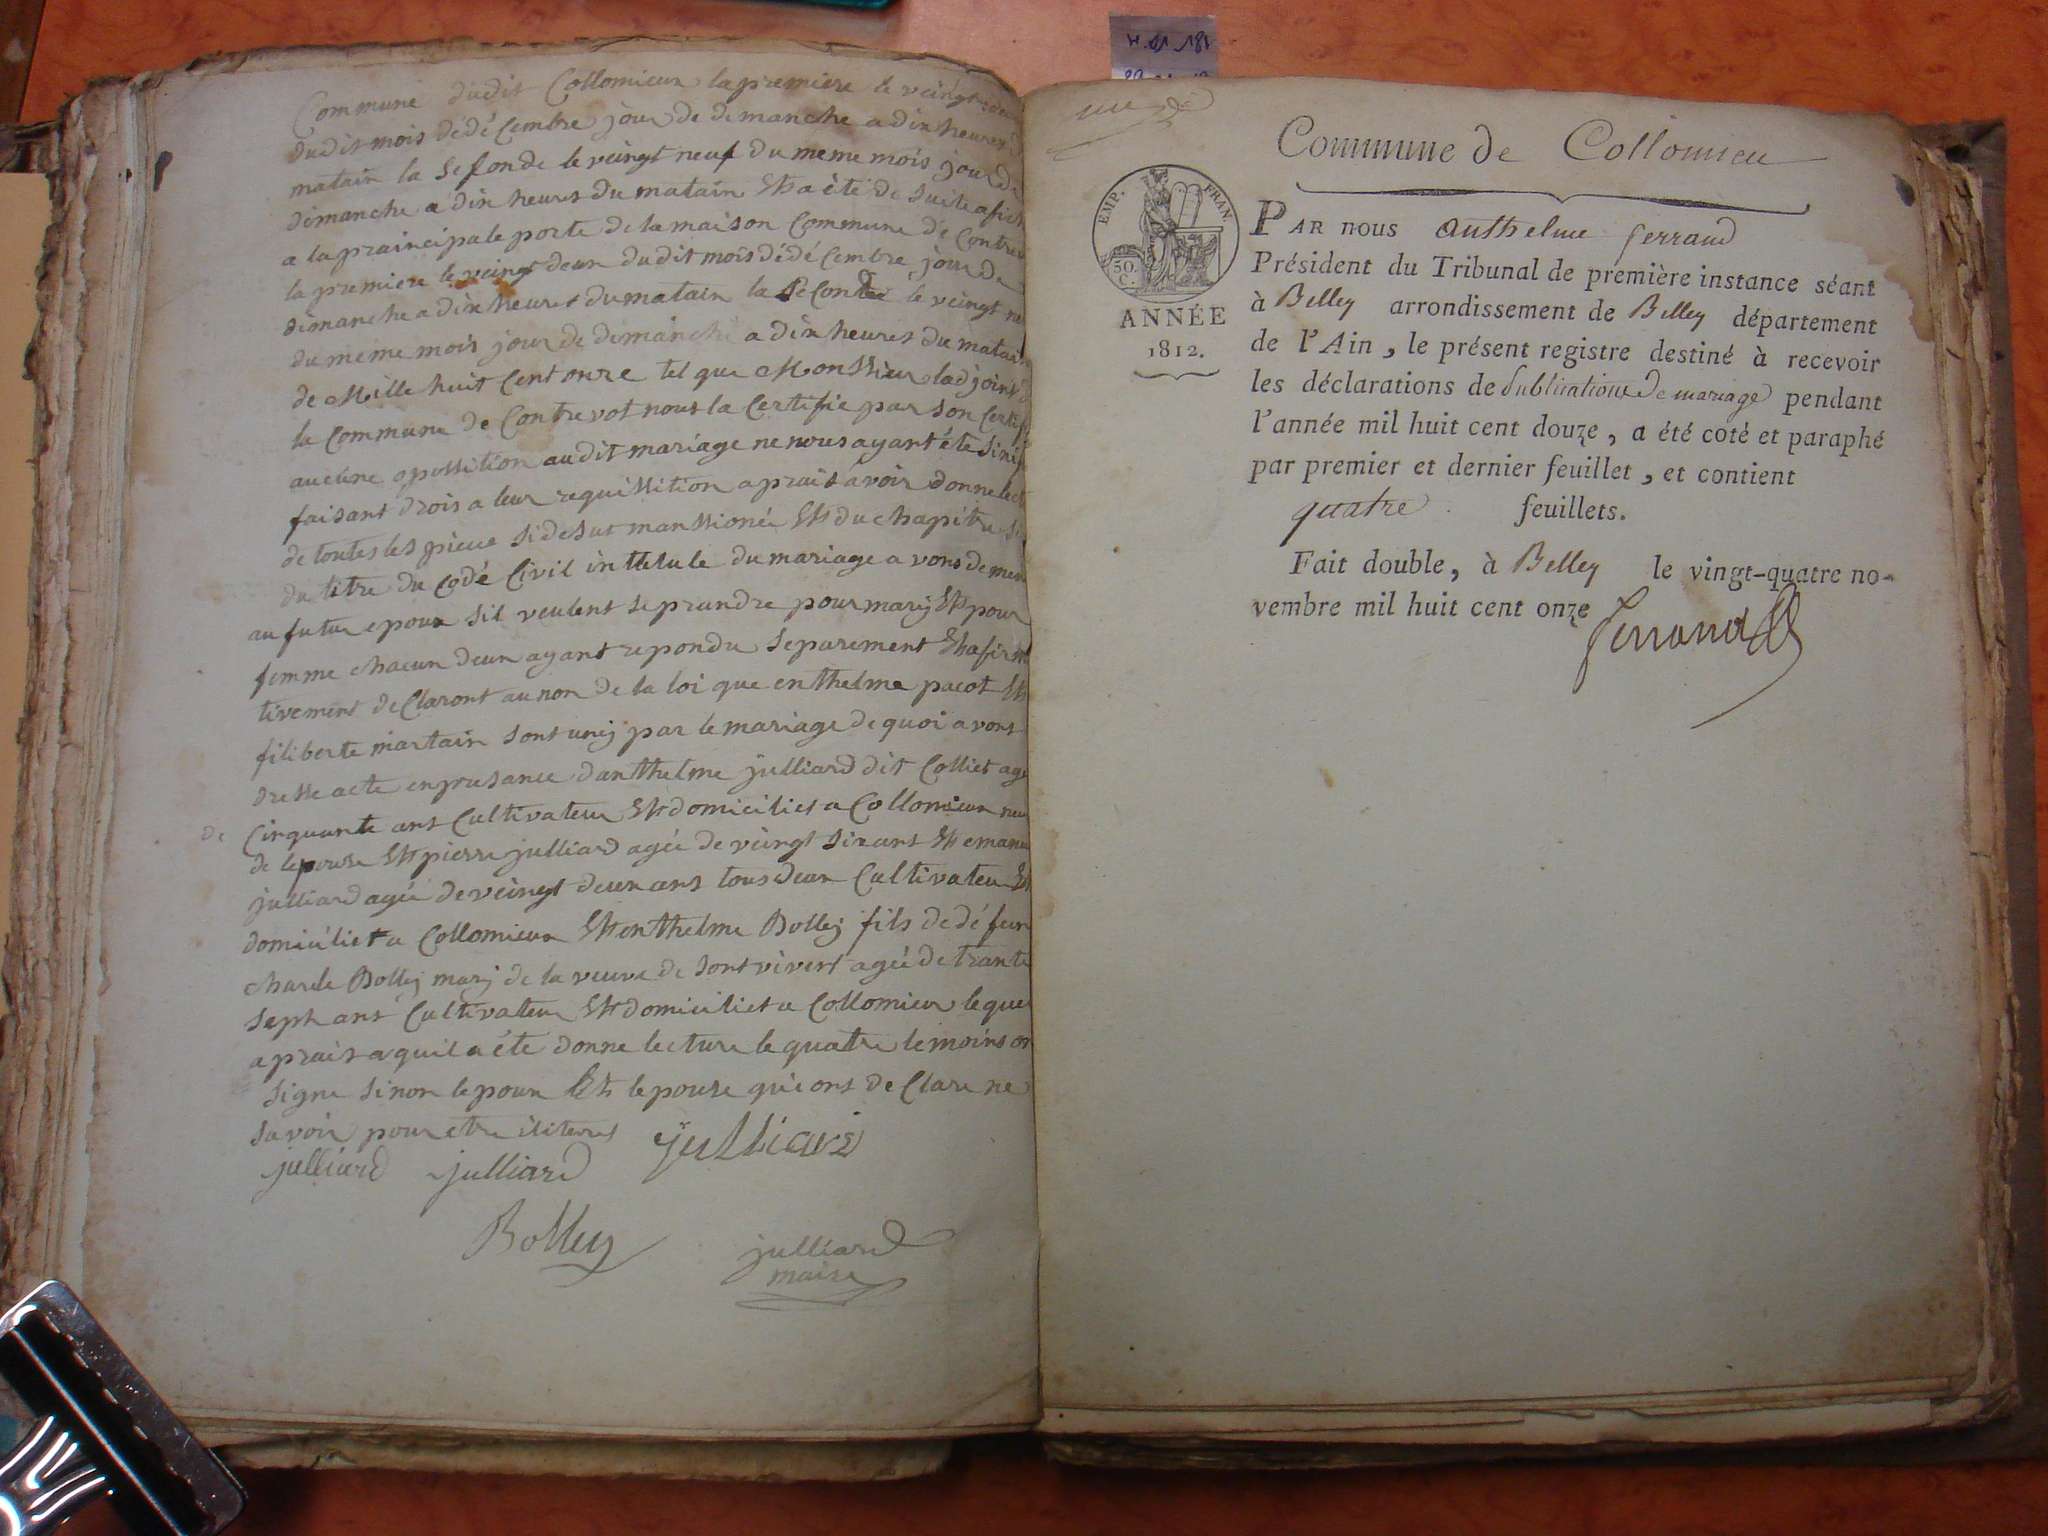 Commune dudit Collomieux la premiere le veingt deux
dudit mois dedé Cembre jour de dimanche a dix heures
matain la Seconde le veingt neuf du meme mois jour de
dimanche a dix heures du matain Et a été de suite afich
a la praincipale porte de la maison Commune de Contre
la premiere le veingt deux dudit mois dédé Cembre jour de
dimanche a dix heures du matain la Seconde le veingt ne
du meme mois jour de dimanche a dix heures du matain
de Mille huit Cent onze tel que Monssieur ladjoint d
la Commune de Contrevot nous la Certifie par son Certifi
aucune opossition audit mariage ne nous ayant été sinifi
faisant drois a leur requissition aprais avoir donne lect
de toutes les piece sidesus manssionée Et du chapitre si
du titre du Codé Civil intitule du mariage avons deman
au futur epoux sil veulent se prandre pour marij Et pour
femme chacun deux ayant repondu separement Et afirm
tivement deClaront au non de la loi que enthelme pacot Et
filiberte martain sont unij par le mariage de quoi avont
dresse acte en presance danthelme julliard dit Colliet age
de Cinquante ans Cultivateur Et domiciliet a Collomieux neu
de lepouse Et pierre julliard agée de veingt six ans Et emanu
julliard agée de veingt deux ans tous deux Cultivateur Et
domiciliet a Collomieux Et enthelme Bolley fils de dé feun
charle Bolley marij de la veuve de sont vivent agée de trante
Sept ans Cultivateur Et domiciliet a Collomieux le que
aprais aquil a été donne lecture le quatre temoins on
signe sinon lepoux Et lepouse qui ont de Clare ne
savoir pour etre iliteres julliard
julliard julliard
Bolley julliard
maire
Commune de Collomieu
EMP. FRAN.
50. C.
ANNÉE
1812.
PAR nous Anthelme ferrand
Président du Tribunal de première instance séant
à Belley arrondissement de Belley département
de l'Ain, le présent registre destiné à recevoir
les déclarations de Publications de mariage pendant
l'année mil huit cent douze, a été coté et paraphé
par premier et dernier feuillet, et contient
quatre feuillets.
Fait double, à Belley le vingt-quatre no-
vembre mil huit cent onze
ferrand